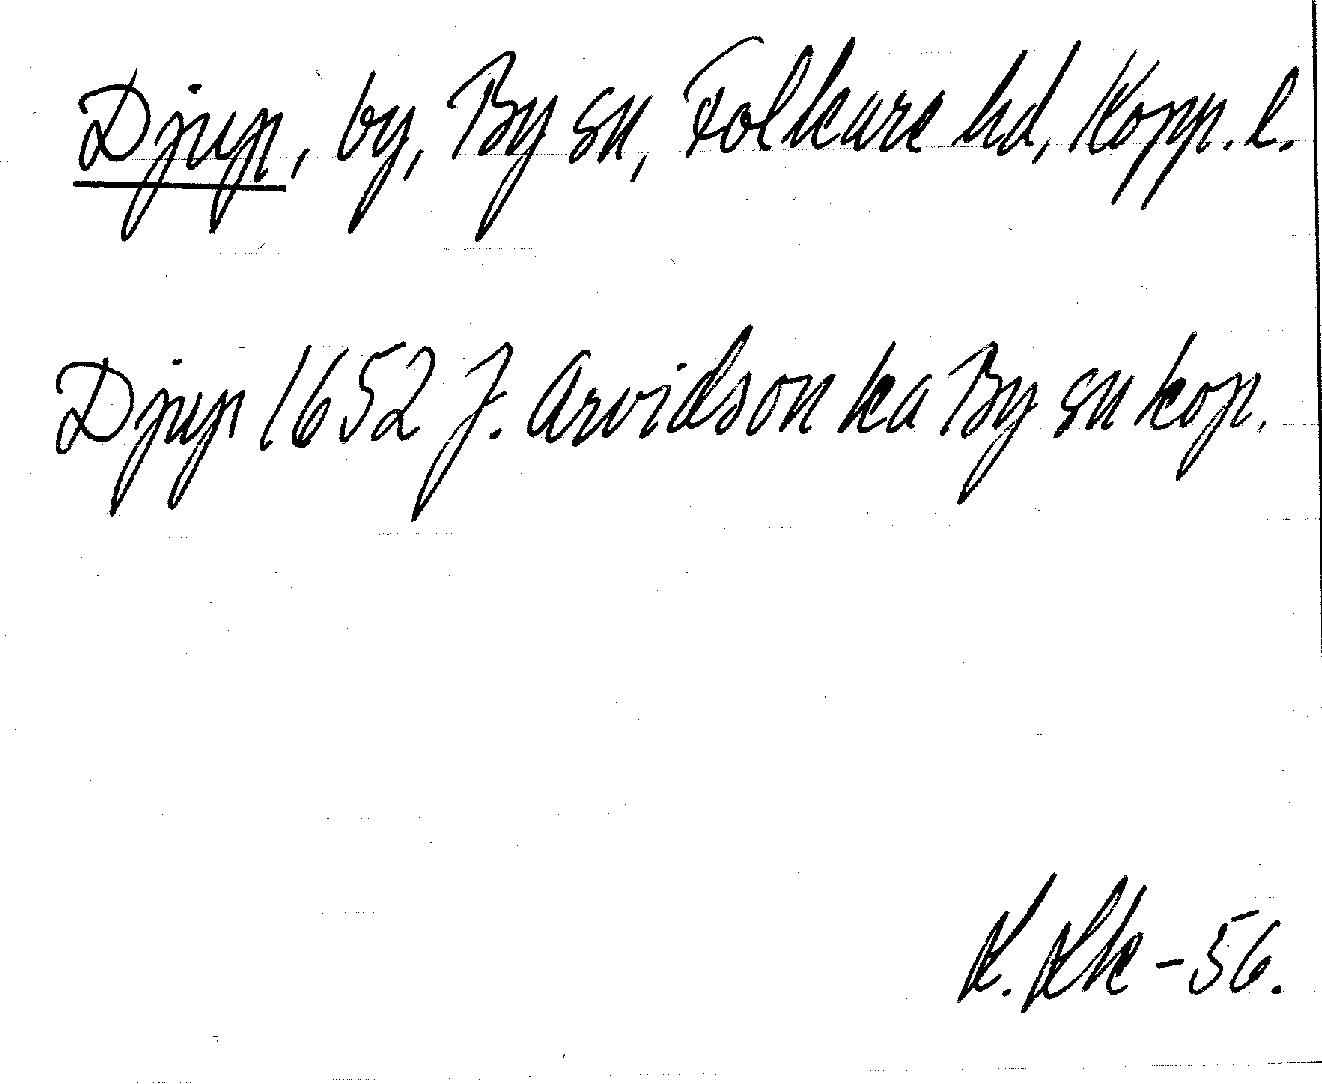 Djup, by, By sn, Folkare hd, Kopp. l.
Djup 1652 J. Arvidson ka By sn kop.
K. Rk - 56.